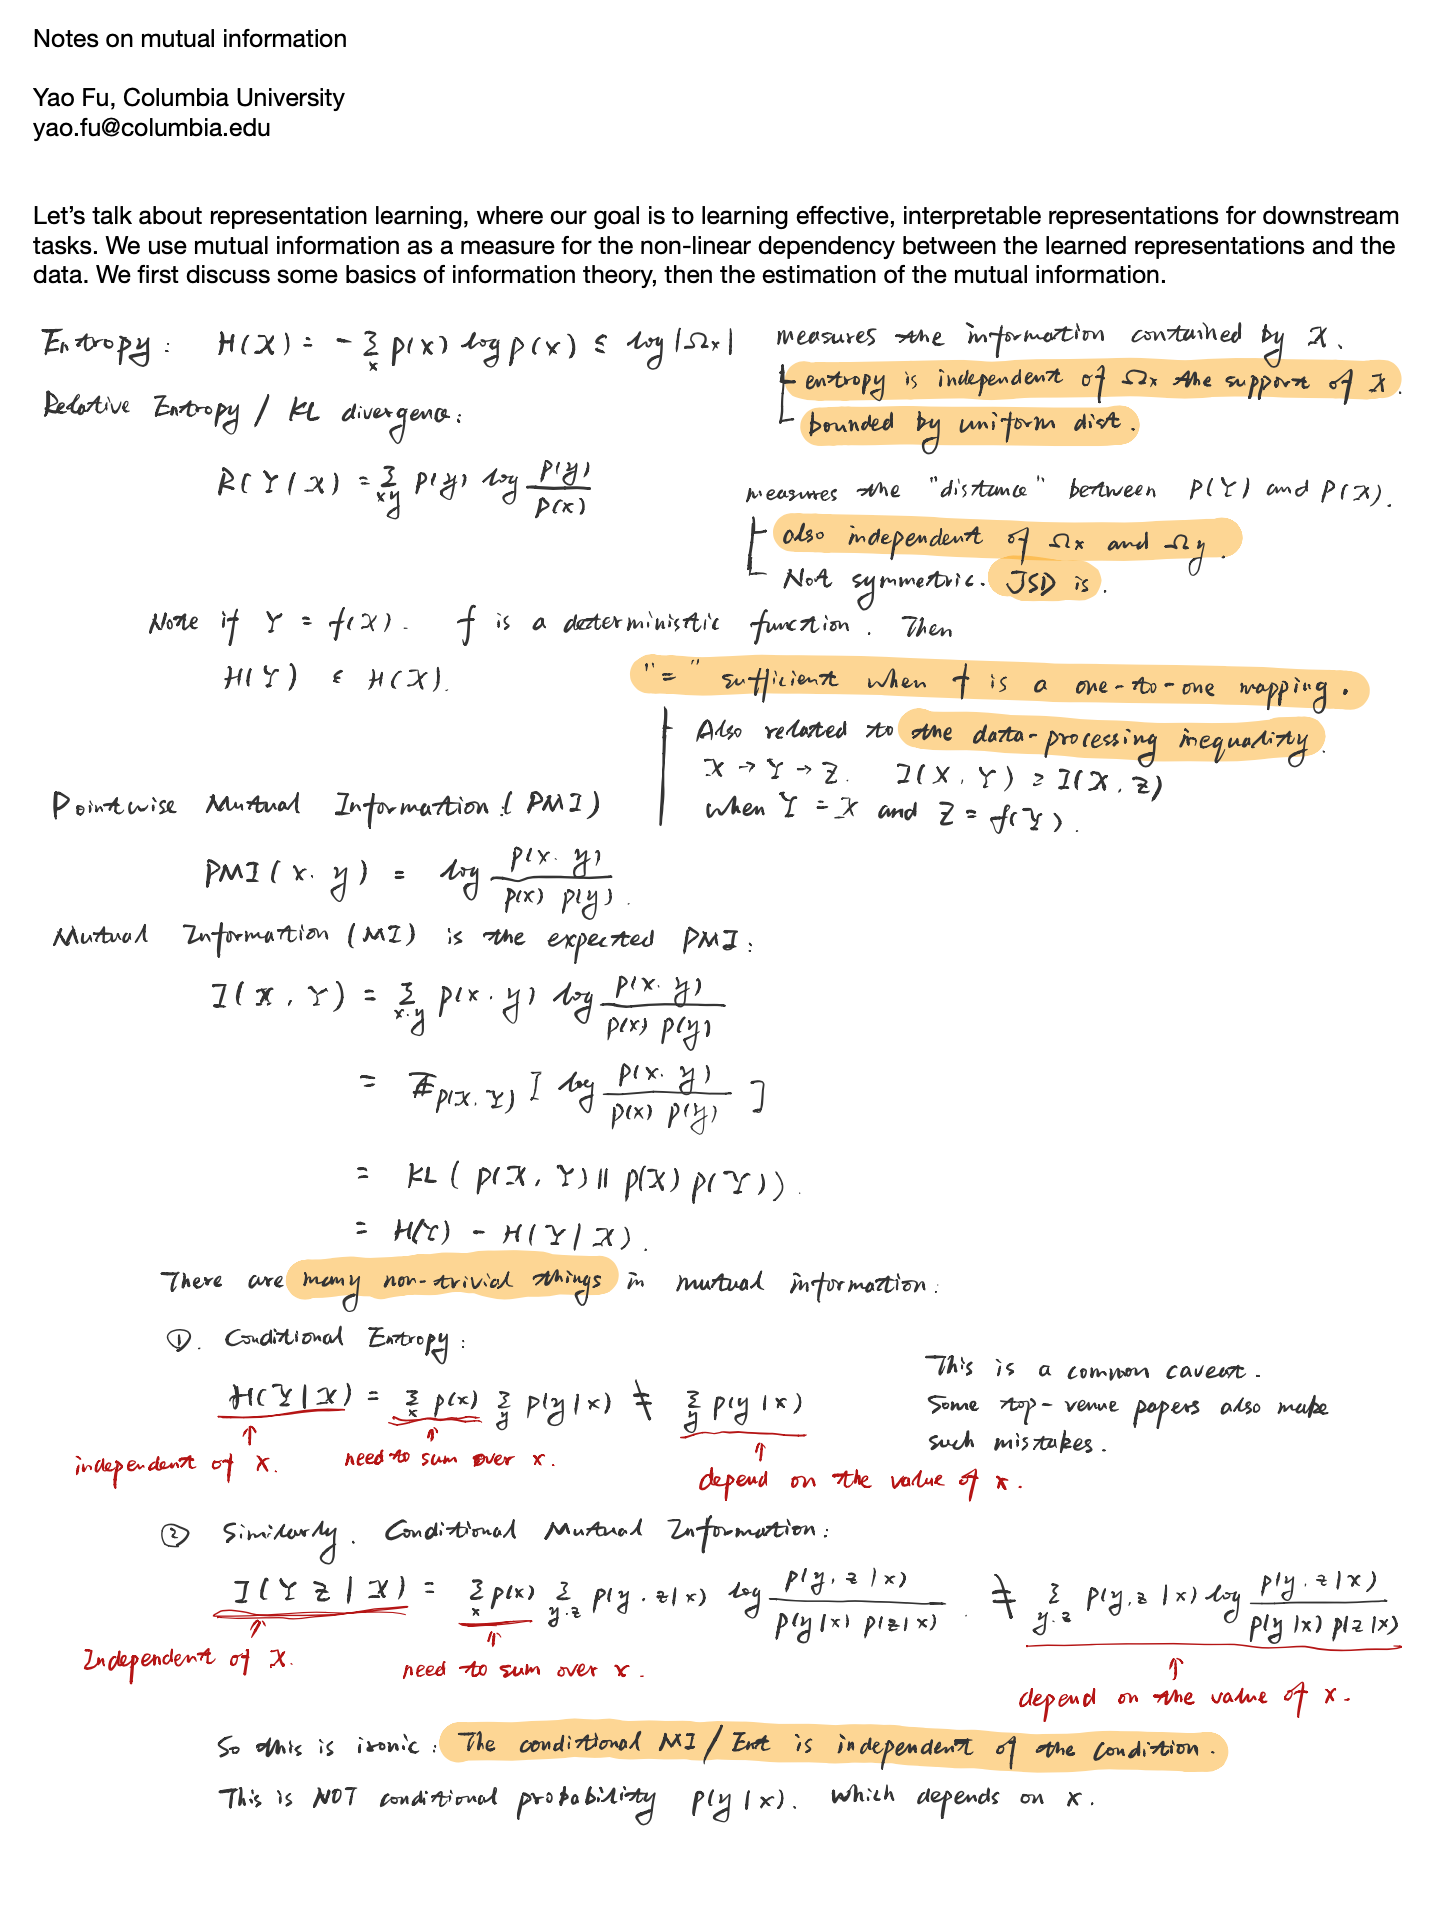 Notes on mutual information
Yao Fu, Columbia University
yao.fu@columbia.edu
Let's talk about representation learning, where our goal is to learning effective, interpretable representations for downstream
tasks. We use mutual information as a measure for the non-linear dependency between the learned representations and the
data. We first discuss some basics of information theory, then the estimation of the mutual information.
Entropy: H(X) = - Σ_x p(x) log p(x) ≤ log |Ωx| measures the information contained by X.
entropy is independent of Ωx the support of X.
Relative Entropy / KL divergence:
bounded by uniform dist.
R(Y|X) = Σ_xy p(y) log p(y) / p(x)
measures the "distance" between P(Y) and P(X).
also independent of Ωx and Ωy.
Not symmetric. JSD is.
Note if Y = f(X). f is a deterministic function. Then
H(Y) ≤ H(X). "=" sufficient when f is a one-to-one mapping.
Also related to the data-processing inequality.
X → Y → Z. I(X, Y) ≥ I(X, Z)
when Y = X and Z = f(Y).
Pointwise Mutual Information (PMI)
PMI(x. y) = log p(x. y) / p(x) p(y).
Mutual Information (MI) is the expected PMI:
I(X, Y) = Σ_x.y p(x. y) log p(x. y) / p(x) p(y)
= E_p(X. Y) [ log p(x. y) / p(x) p(y) ]
= KL ( p(X, Y) || p(X) p(Y) ).
= H(Y) - H(Y|X).
There are many non-trivial things in mutual information:
①. Conditional Entropy:
H(Y|X) = Σ_x p(x) Σ_y p(y|x) ≠ Σ_y p(y|x)
independent of X. need to sum over x. depend on the value of x.
This is a common caveat.
Some top-venue papers also make
such mistakes.
② Similarly. Conditional Mutual Information:
I(Y Z | X) = Σ_x p(x) Σ_y.z p(y. z|x) log p(y, z|x) / p(y|x) p(z|x). ≠ Σ_y.z p(y, z|x) log p(y. z|x) / p(y|x) p(z|x)
Independent of X. need to sum over x. depend on the value of x.
So this is ironic: The conditional MI / Ent is independent of the condition.
This is NOT conditional probability p(y|x). which depends on x.